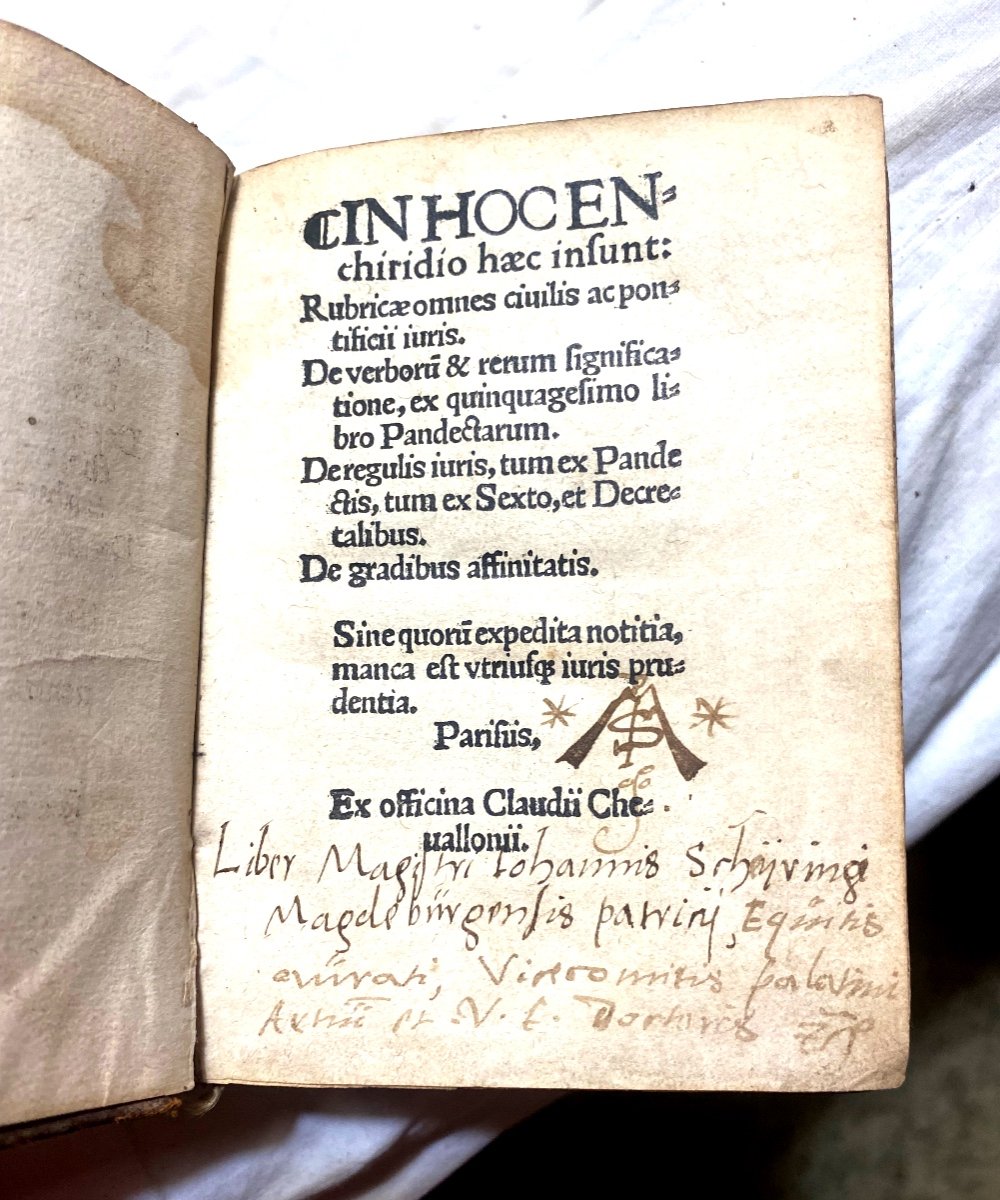 ¶IN HOC EN⸗
chiridio hæc inſunt:
Rubricæ omnes ciuilis ac pon⸗
tificii iuris.
De verborū & rerum ſignifica⸗
tione, ex quinquageſimo li⸗
bro Pandectarum.
De regulis iuris, tum ex Pande
ctis, tum ex Sexto, et Decre⸗
talibus.
De gradibus affinitatis.
Sine quorū expedita notitia,
manca eſt vtriuſqꝫ iuris pru⸗
dentia.
Pariſiis,
Ex officina Claudii Che⸗
uallonii.
Liber Magiſtri Iohannis Schÿringi
Magdebŭrgenſis patricij, Eqŭitis
aŭrati, Vicecomitis palatini
Artiū et V. I. Doctoris